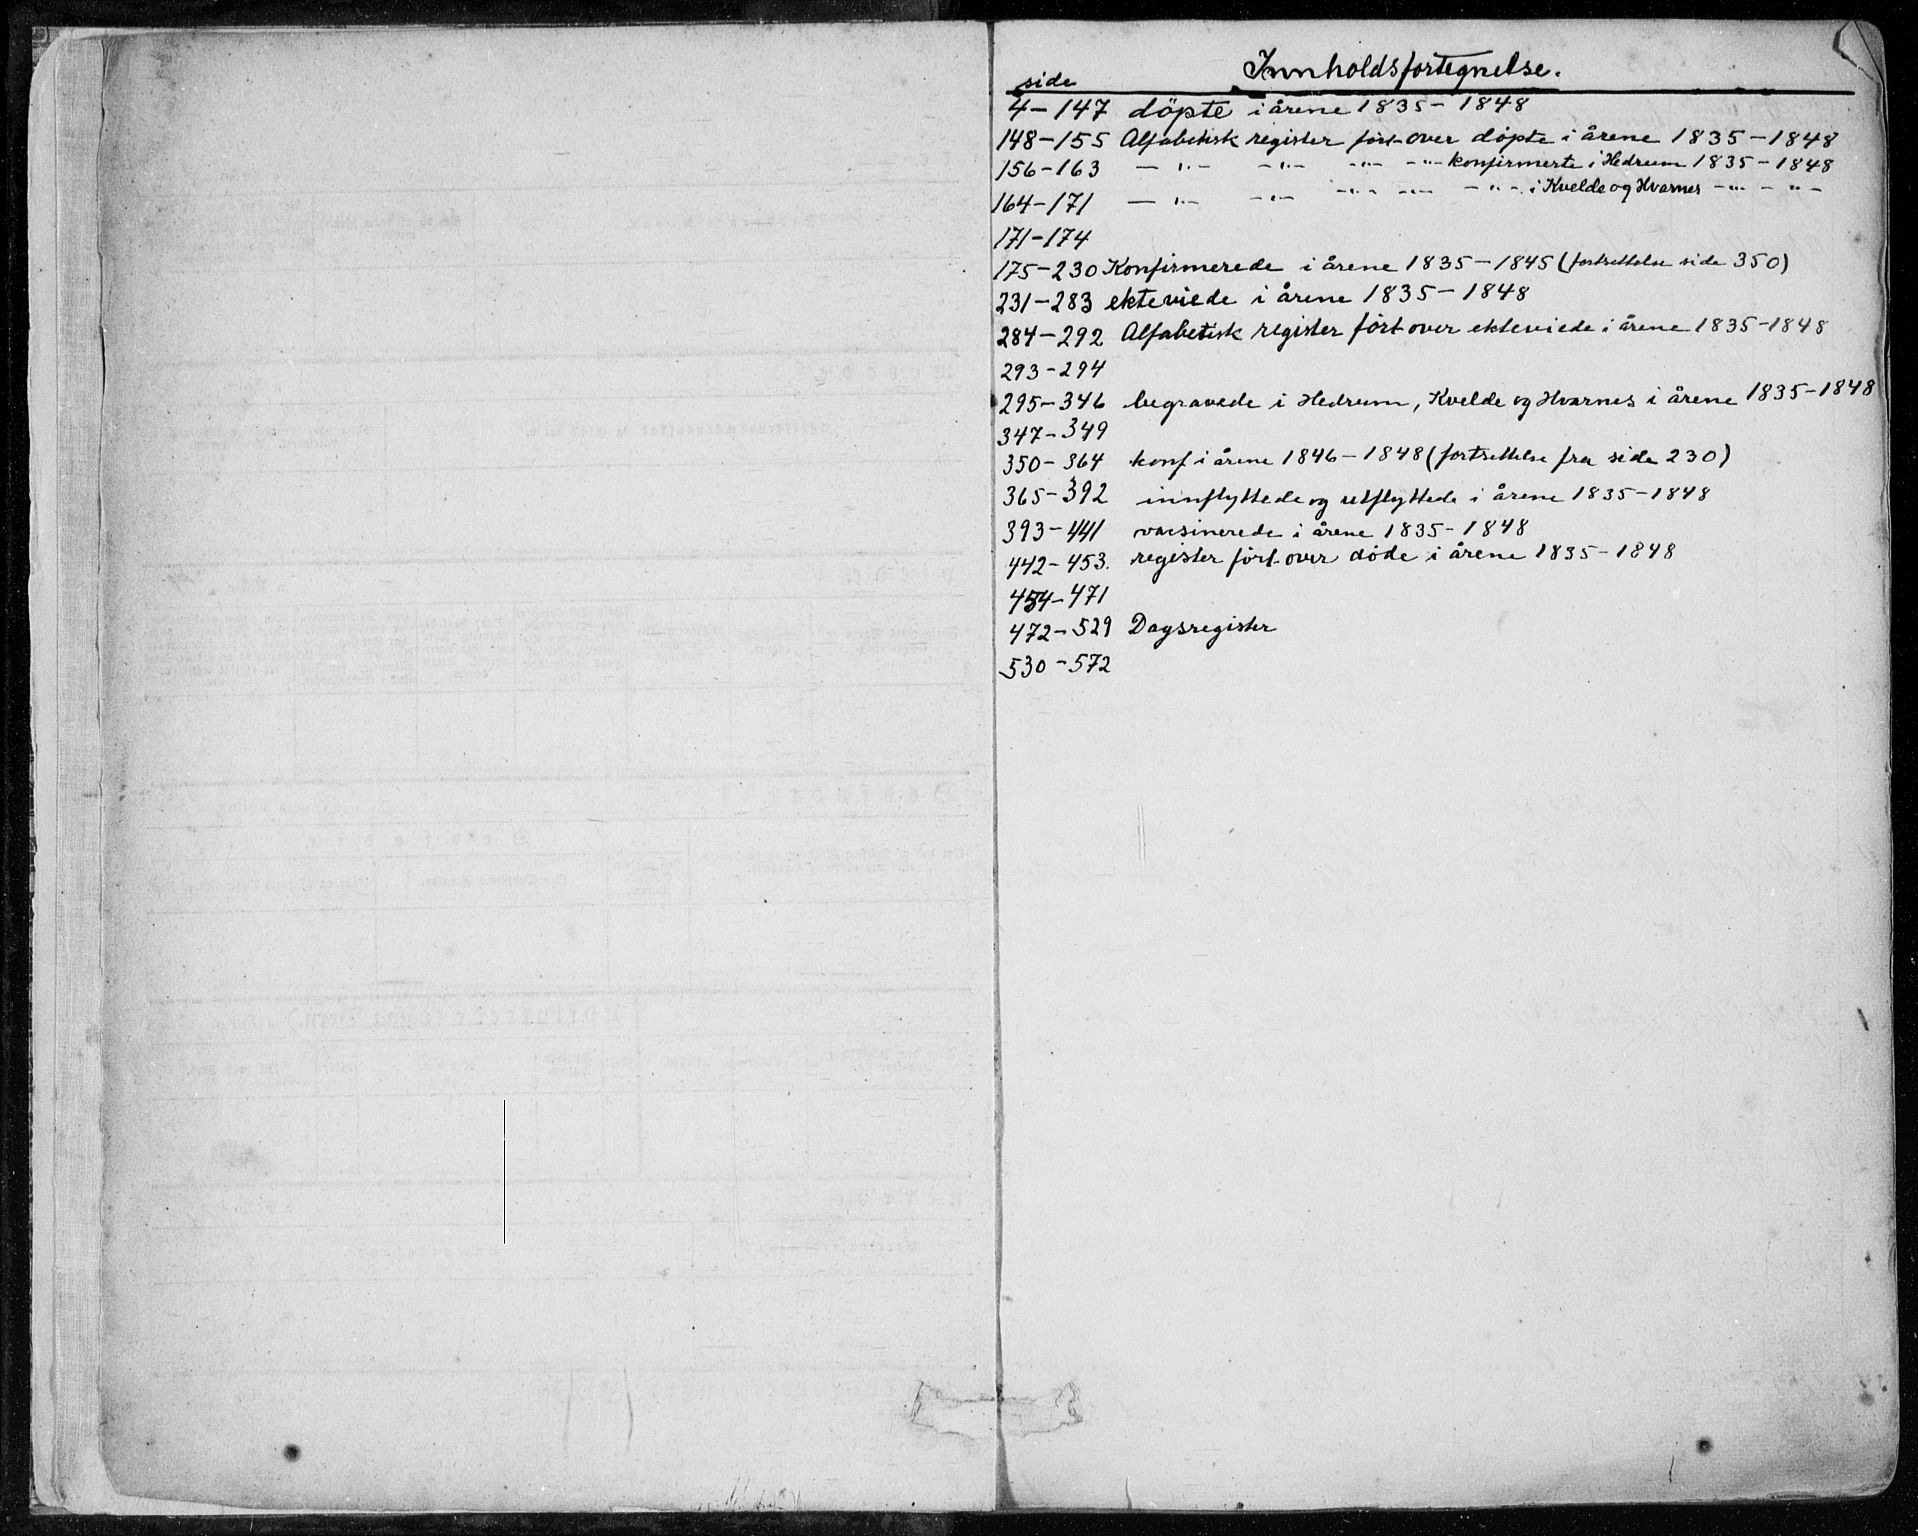 Innholdsfortegnelse.
side
4-147 döpte i årene 1835-1848
148-155 Alfabetisk register ført over döpte i årene 1835-1848
156-163 -"- -"- -"- -"- konfirmerte i Hedrum 1835-1848
164-171 -"- -"- -"- -"- -"- i Kvelde og Hvarnes -"- -"-
171-174
175-230 Konfirmerede i årene 1835-1845 (fortsettelse side 350)
231-283 ekteviede i årene 1835-1848
284-292 Alfabetisk register ført over ekteviede i årene 1835-1848
293-294
295-346 begravede i Hedrum, Kvelde og Hvarnes i årene 1835-1848
347-349
350-364 konf i årene 1846-1848 (fortsettelse fra side 230)
365-392 innflyttede og utflyttede i årene 1835-1848
393-441 vacsinerede i årene 1835-1848
442-453. register ført over døde i årene 1835-1848
454-471
472-529 Dagsregister
530-572